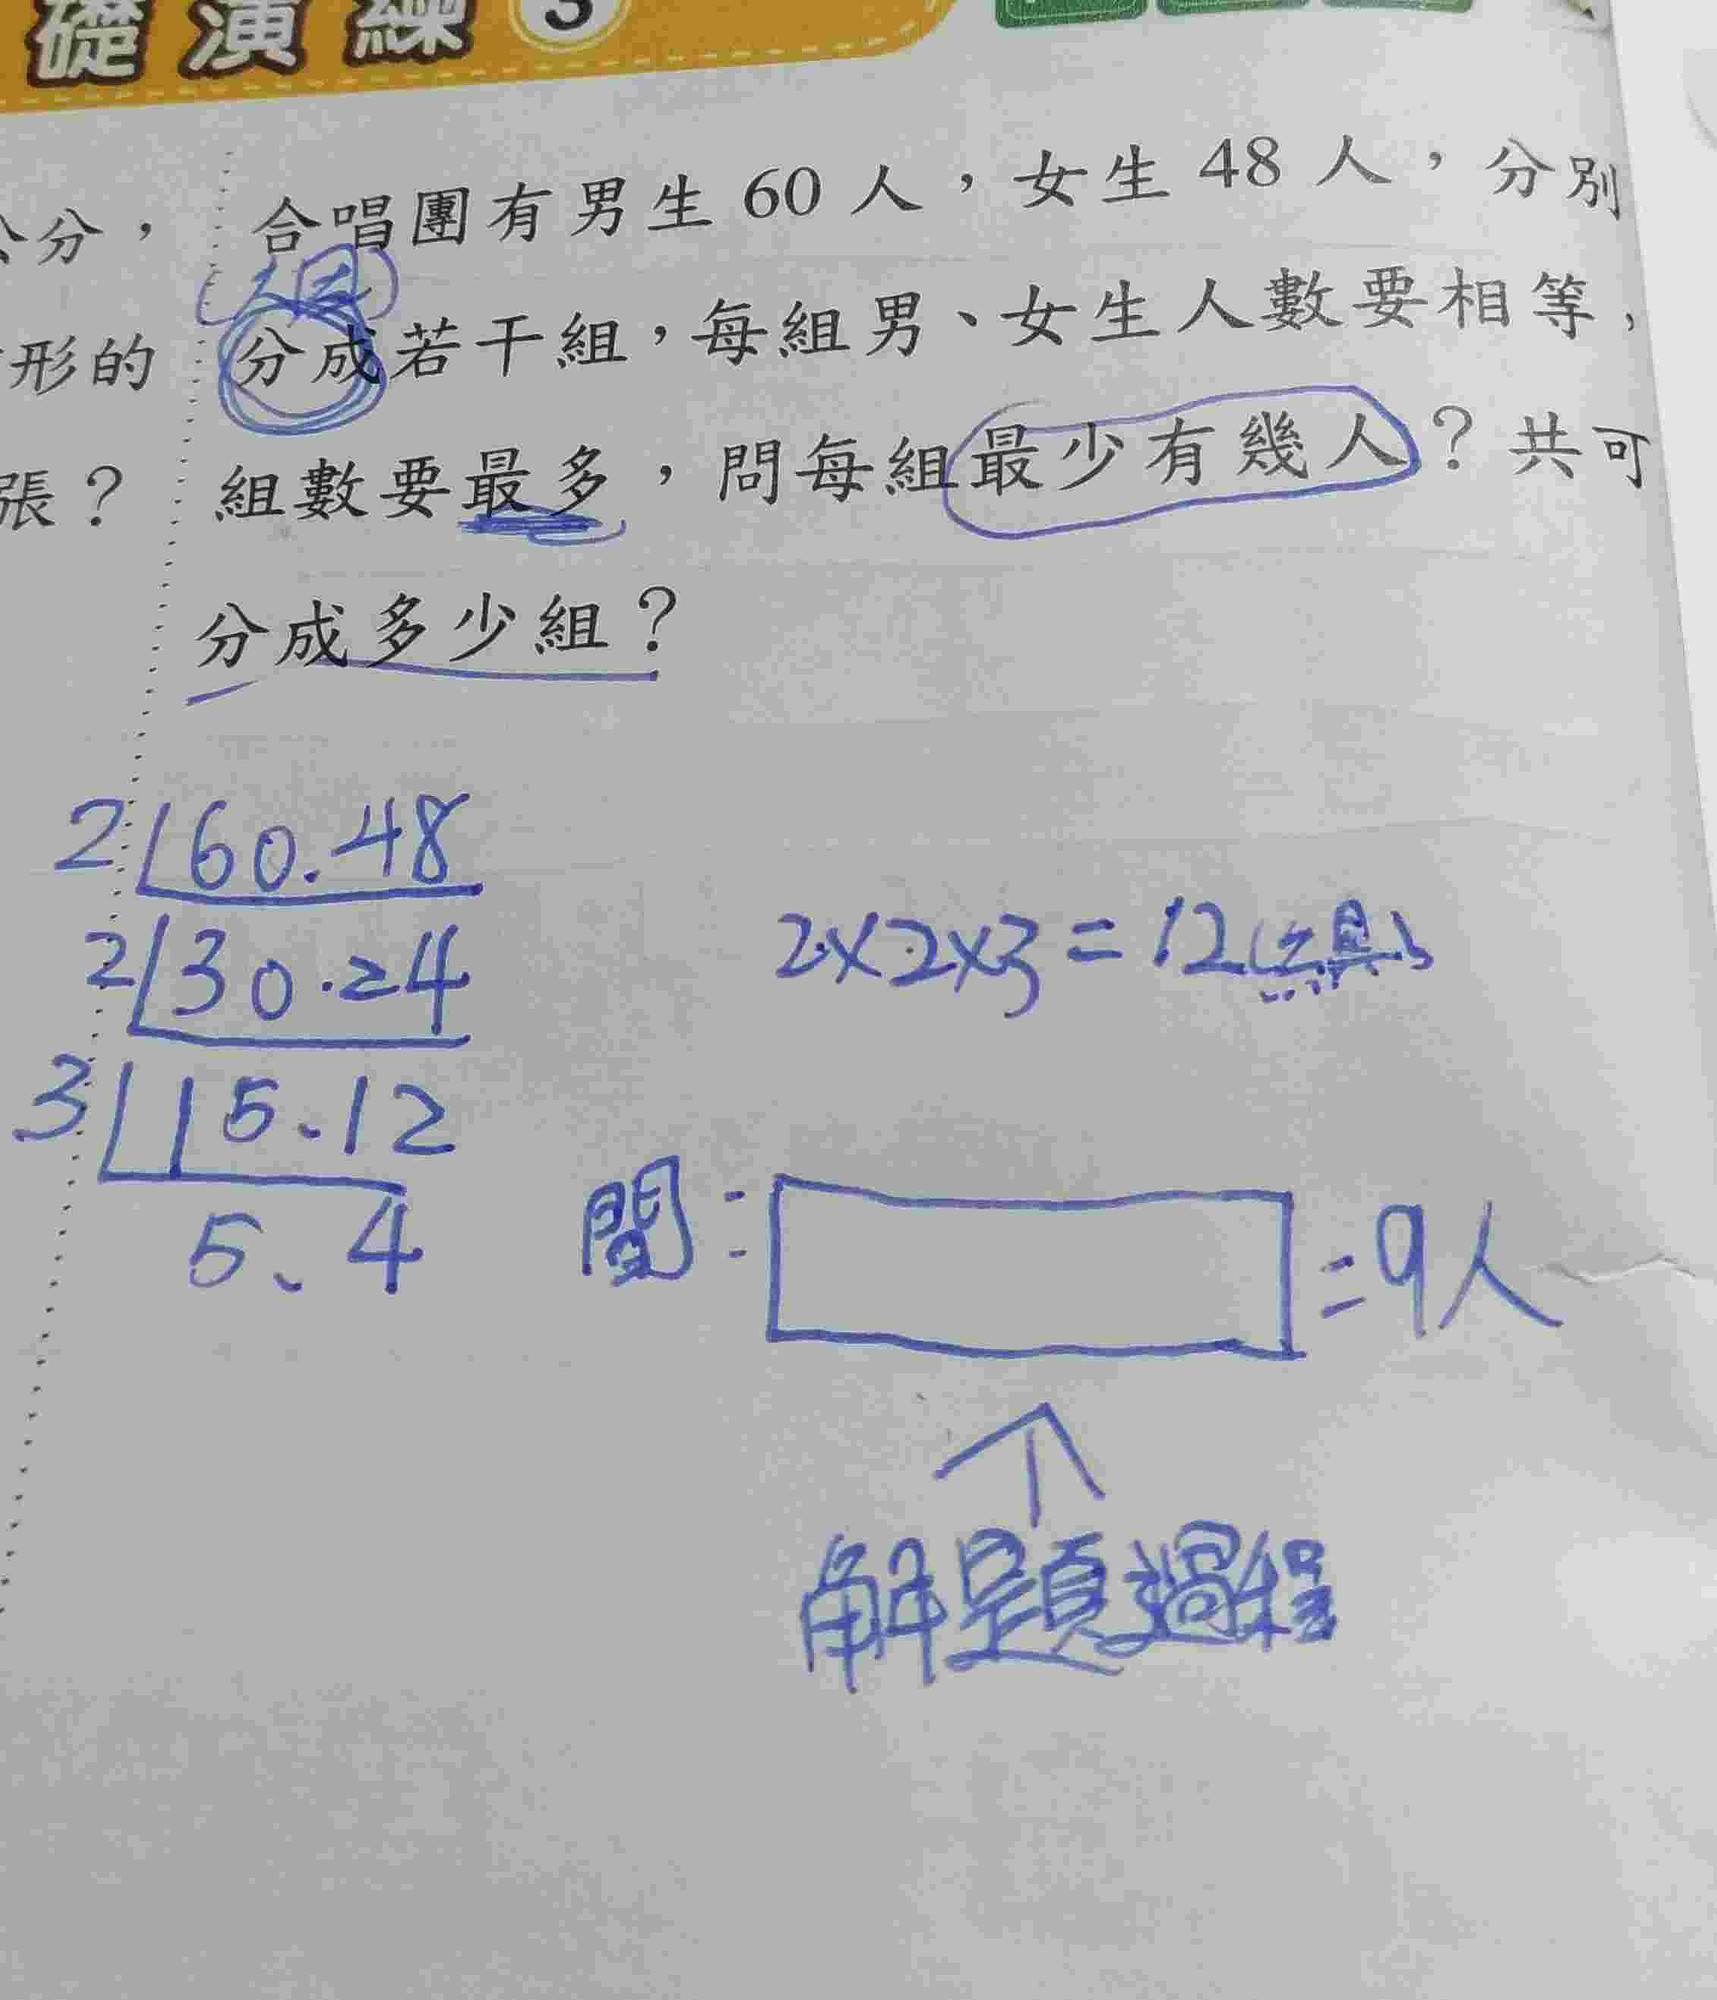 礎演練 3
公分，
合唱團有男生 60 人，女生 48 人，分別
形的
分成若干組，每組男、女生人數要相等，
張？
組數要最多，問每組最少有幾人？共可
分成多少組？
2 60.48
2 30.24
3 15.12
5、4
2×2×3=12
問：
=9人
解題過程